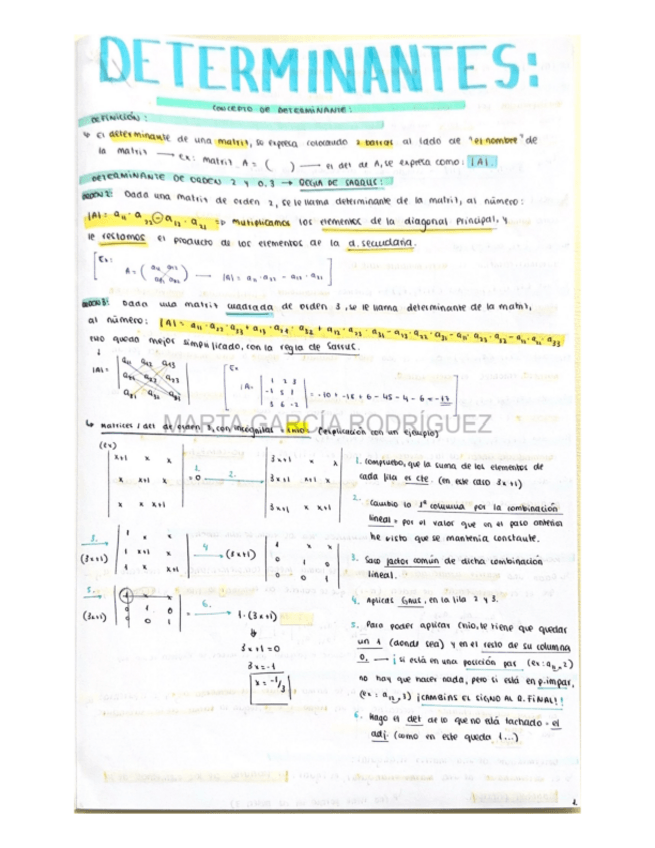 DETERMINANTES:
CONCEPTO DE DETERMINANTE:
DEFINICIÓN:
El determinante de una matriz, se expresa colocando 2 barras al lado de "el nombre" de
la matriz → Ex: matriz A = ( ) → el det de A, se expresa como: |A|.
DETERMINANTE DE ORDEN 2 y O.3 → REGLA DE SARRUS:
ORDEN 2: Dada una matriz de orden 2, se le llama determinante de la matriz, al número:
|A| = a₁₁ · a₂₂ - a₁₂ · a₂₁ multiplicamos los elementos de la diagonal principal, y
le restamos el producto de los elementos de la d. secundaria.
Ex:
A = ( ) → |A| = a₁₁ · a₂₂ - a₁₂ · a₂₁
ORDEN 3: Dada una matriz cuadrada de orden 3, se le llama determinante de la matriz,
al número: |A| =
esto queda mejor simplificado, con la regla de Sarrus.
|A| = a₁₁ a₁₂ a₁₃
Ex
|A| = 1 2 3
-1 5 1
3 6 -2
= -10 + -18 + 6 - 45 - 4 - 6 = -
MARTA GARCÍA RODRÍGUEZ
Matrices / det de orden 3, con incógnitas (explicación con un ejemplo)
(Ex)
x+1 x x
x x+1 x
x x x+1
= 0
1.
2.
3x+1 x x
3x+1 x+1 x
3x+1 x x+1
1. Compruebo, que la suma de los elementos de
cada fila es cte. (en este caso 3x+1)
2. Cambio la 1ª columna por la combinación
lineal = por el valor que en el paso anterior
he visto que se mantenía constante.
3.
(3x+1)
1 x x
1 x+1 x
1 x x+1
4
(3x+1)
1 x x
0 1 0
0 0 1
3. Saco factor común de dicha combinación
lineal.
4. Aplicas Gauss, en la fila 2 y 3.
5.
(3x+1)
1 x x
0 1 0
0 0 1
=
6.
1·(3x+1)
3x+1=0
3x=-1
x = -1/3
5. Para poder aplicar Cnio, te tiene que quedar
un 1 (donde sea) y en el resto de su columna
0. → ¡si está en una posición par (ex: a₂,2)
no hay que hacer nada, pero si está en p. impar,
(ex: a₁₂,3) ¡CAMBIAS EL SIGNO AL R. FINAL!!
6. Hago el det de lo que no está tachado = el
adj. (como en este queda 1...)